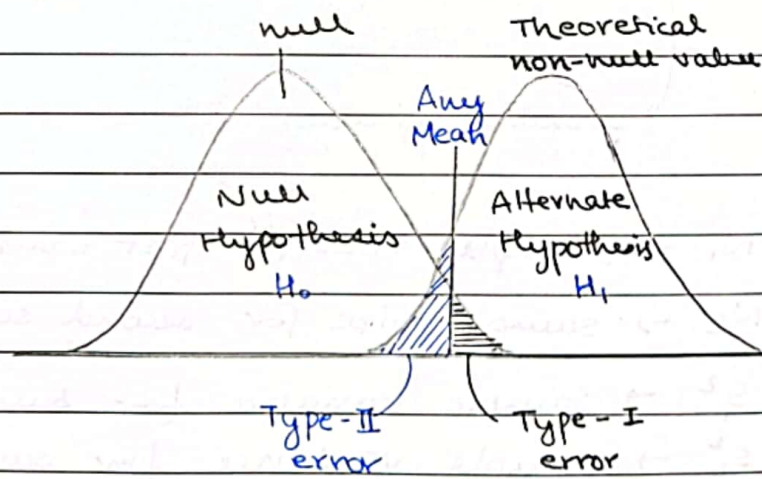 null
Theoretical
non-null value
Any
Mean
Null
Hypothesis
H₀
Alternate
Hypothesis
H₁
Type-II
error
Type-I
error